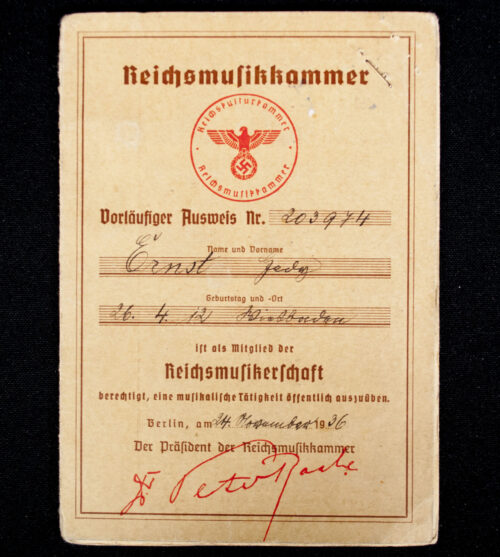 Reichsmusikkammer
Reichskulturkammer
Reichsmusikkammer
Vorläufiger Ausweis Nr. 203974
Name und Vorname
Ernst
Geburtstag und -Ort
26. 4. 12 Wiesbaden
ist als Mitglied der
Reichsmusikerschaft
berechtigt, eine musikalische Tätigkeit öffentlich auszuüben.
Berlin, am 24. November 1936
Der Präsident der Reichsmusikkammer
Dr. Peter Raabe